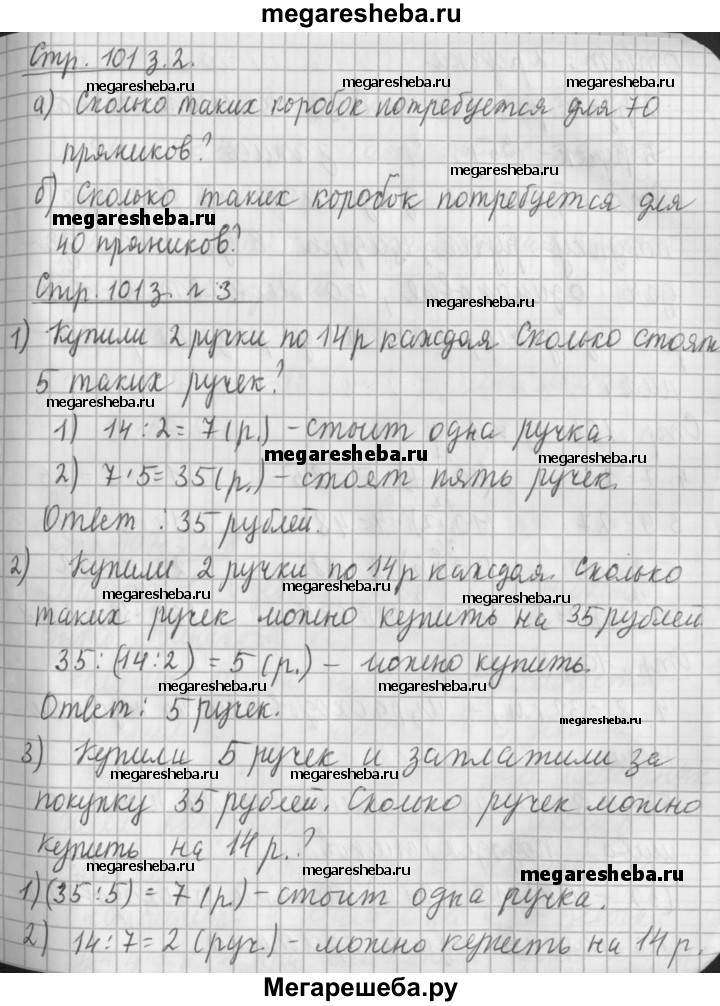 megaresheba.ru
Стр. 101 з. 2.
megaresheba.ru megaresheba.ru megaresheba.ru
а) Сколько таких коробок потребуется для 70
пряников?
megaresheba.ru
б) Сколько таких коробок потребуется для
megaresheba.ru
40 пряников?
Стр. 101 з. № 3
megaresheba.ru
1) Купили 2 ручки по 14 р каждая Сколько стоят
5 таких ручек?
megaresheba.ru megaresheba.ru
1) 14 : 2 = 7 (р.) - стоит одна ручка.
megaresheba.ru
2) 7 · 5 = 35 (р.) - стоят пять ручек.
Ответ : 35 рублей.
megaresheba.ru
2) Купили 2 ручки по 14 р каждая. Сколько
megaresheba.ru megaresheba.ru megaresheba.ru
таких ручек можно купить на 35 рублей.
35 : (14 : 2) = 5 (р.) - можно купить.
megaresheba.ru megaresheba.ru
Ответ : 5 ручек.
megaresheba.ru
3) Купили 5 ручек и заплатили за
megaresheba.ru megaresheba.ru
покупку 35 рублей. Сколько ручек можно
купить на 14 р.?
megaresheba.ru megaresheba.ru megaresheba.ru
1) (35 : 5) = 7 (р.) - стоит одна ручка.
2) 14 : 7 = 2 (руч.) - можно купить на 14 р.
Мегарешеба.ру